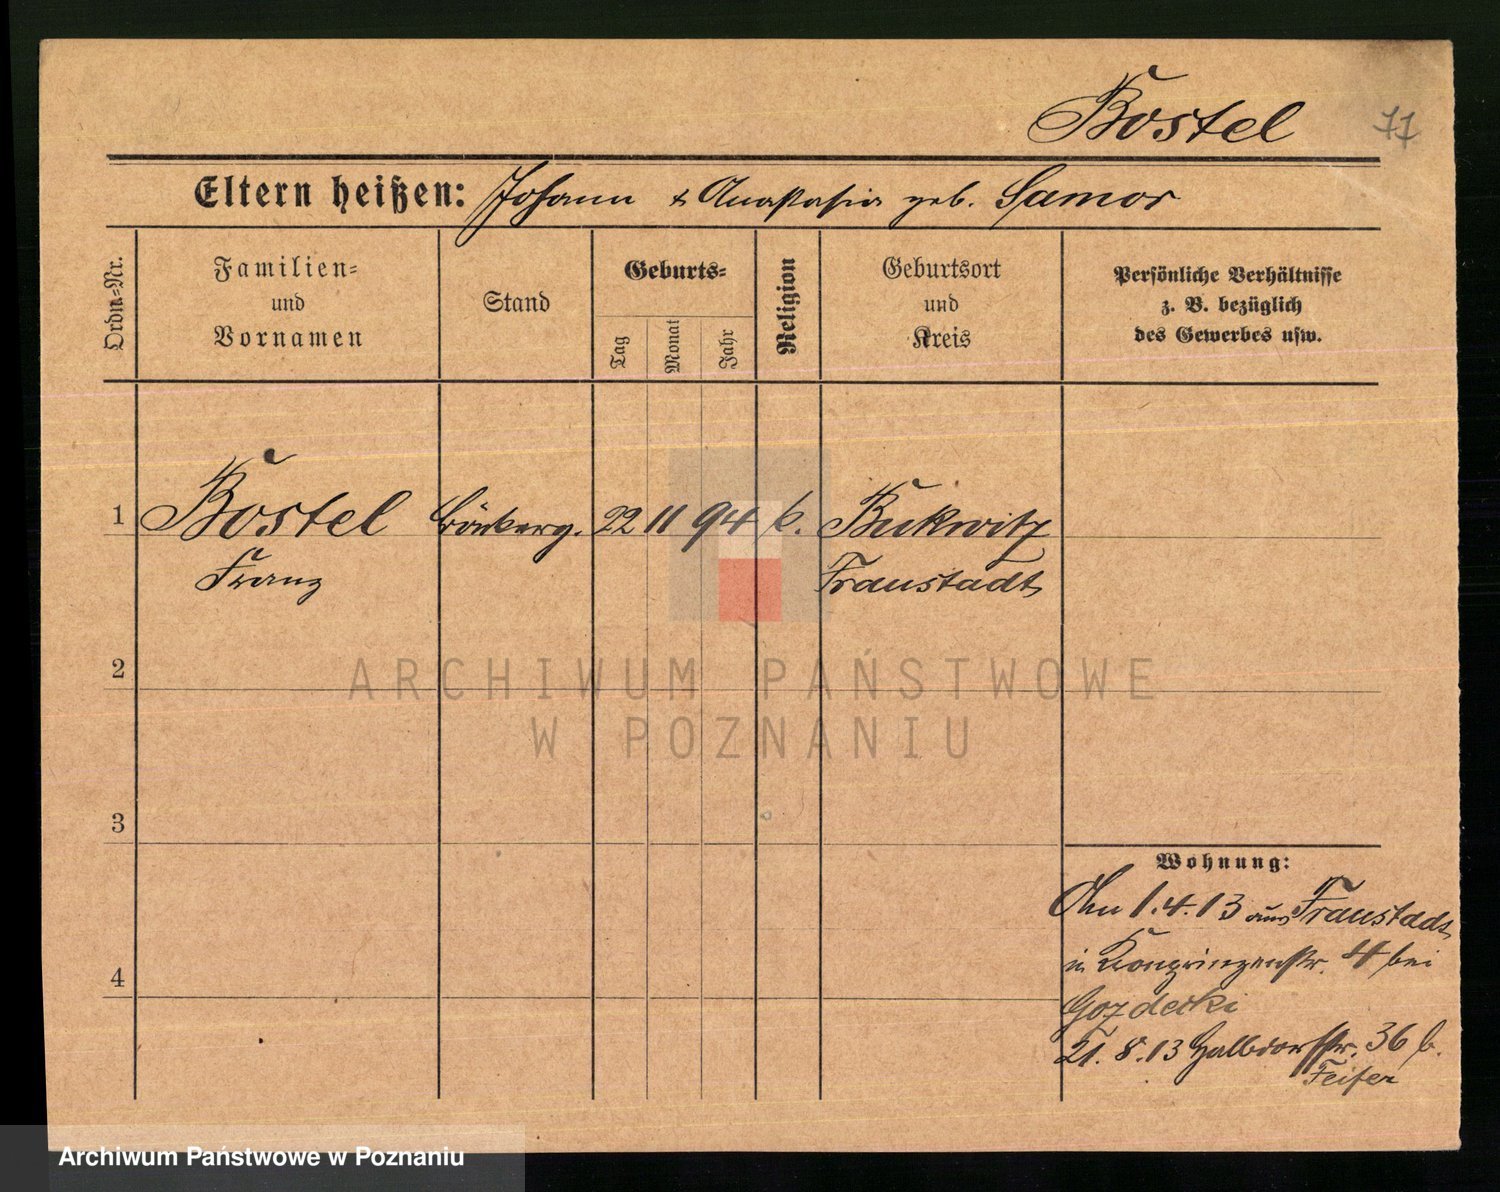 Bostel 77
Eltern heißen: Johann & Anastasia geb. Samor
Ordn=Nr.
Familien=
und
Vornamen
Stand
Geburts=
Tag
Monat
Jahr
Religion
Geburtsort
und
Kreis
Persönliche Verhältnisse
z. B. bezüglich
des Gewerbes usw.
1 Bostel 22 11 94 k. Bukwitz
Franz Fraustadt
2
3
4
Wohnung:
1.4.13 aus Fraustadt
in Kronprinzenstr. 4 bei
Gozdecki
21.8.13 Halbdorfstr. 36 b.
Feifer
ARCHIWUM PAŃSTWOWE
W POZNANIU
Archiwum Państwowe w Poznaniu